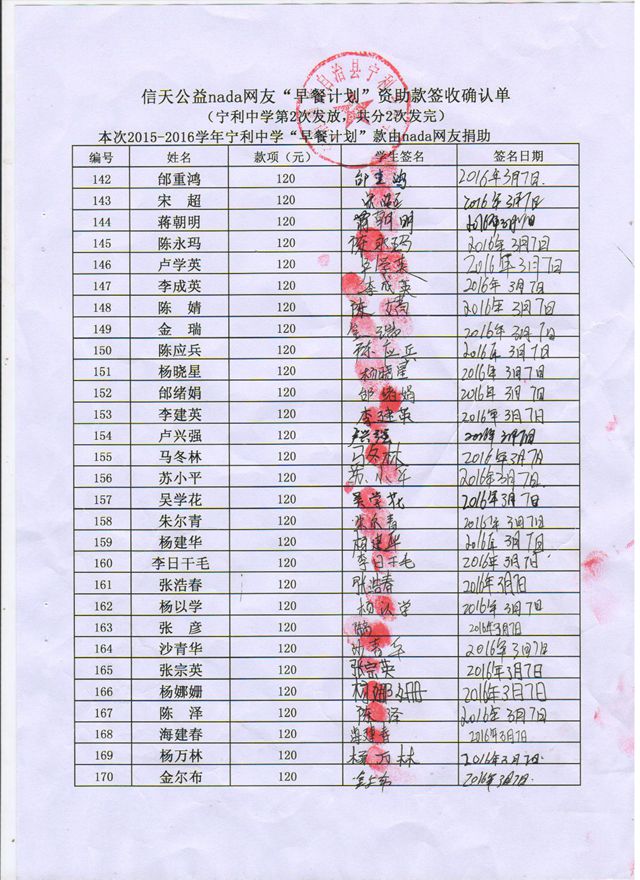 自治县宁利
信天公益nada网友“早餐计划”资助款签收确认单
（宁利中学第2次发放，共分2次发完）
本次2015-2016学年宁利中学“早餐计划”款由nada网友捐助
编号 姓名 款项（元） 学生签名 签名日期
142 邰重鸿 120 邰重鸿 2016年3月7日
143 宋 超 120 宋超 2016年3月7日
144 蒋朝明 120 蒋朝明 2016年3月7日
145 陈永玛 120 陈永玛 2016年3月7日
146 卢学英 120 卢学英 2016年3月7日
147 李成英 120 李成英 2016年3月7日
148 陈 婧 120 陈婧 2016年3月7日
149 金 瑞 120 金瑞 2016年3月7日
150 陈应兵 120 陈应兵 2016年3月7日
151 杨晓星 120 杨晓星 2016年3月7日
152 邰绪娟 120 邰绪娟 2016年3月7日
153 李建英 120 李建英 2016年3月7日
154 卢兴强 120 卢兴强 2016年3月7日
155 马冬林 120 马冬林 2016年3月7日
156 苏小平 120 苏小平 2016年3月7日
157 吴学花 120 吴学花 2016年3月7日
158 朱尔青 120 朱尔青 2016年3月7日
159 杨建华 120 杨建华 2016年3月7日
160 李日干毛 120 李日干毛 2016年3月7日
161 张浩春 120 张浩春 2016年3月7日
162 杨以学 120 杨以学 2016年3月7日
163 张 彦 120 2016年3月7日
164 沙青华 120 沙青华 2016年3月7日
165 张宗英 120 张宗英 2016年3月7日
166 杨娜姗 120 杨娜姗 2016年3月7日
167 陈 泽 120 陈泽 2016年3月7日
168 海建春 120 海建春 2016年3月7日
169 杨万林 120 杨万林 2016年3月7日
170 金尔布 120 金尔布 2016年3月7日